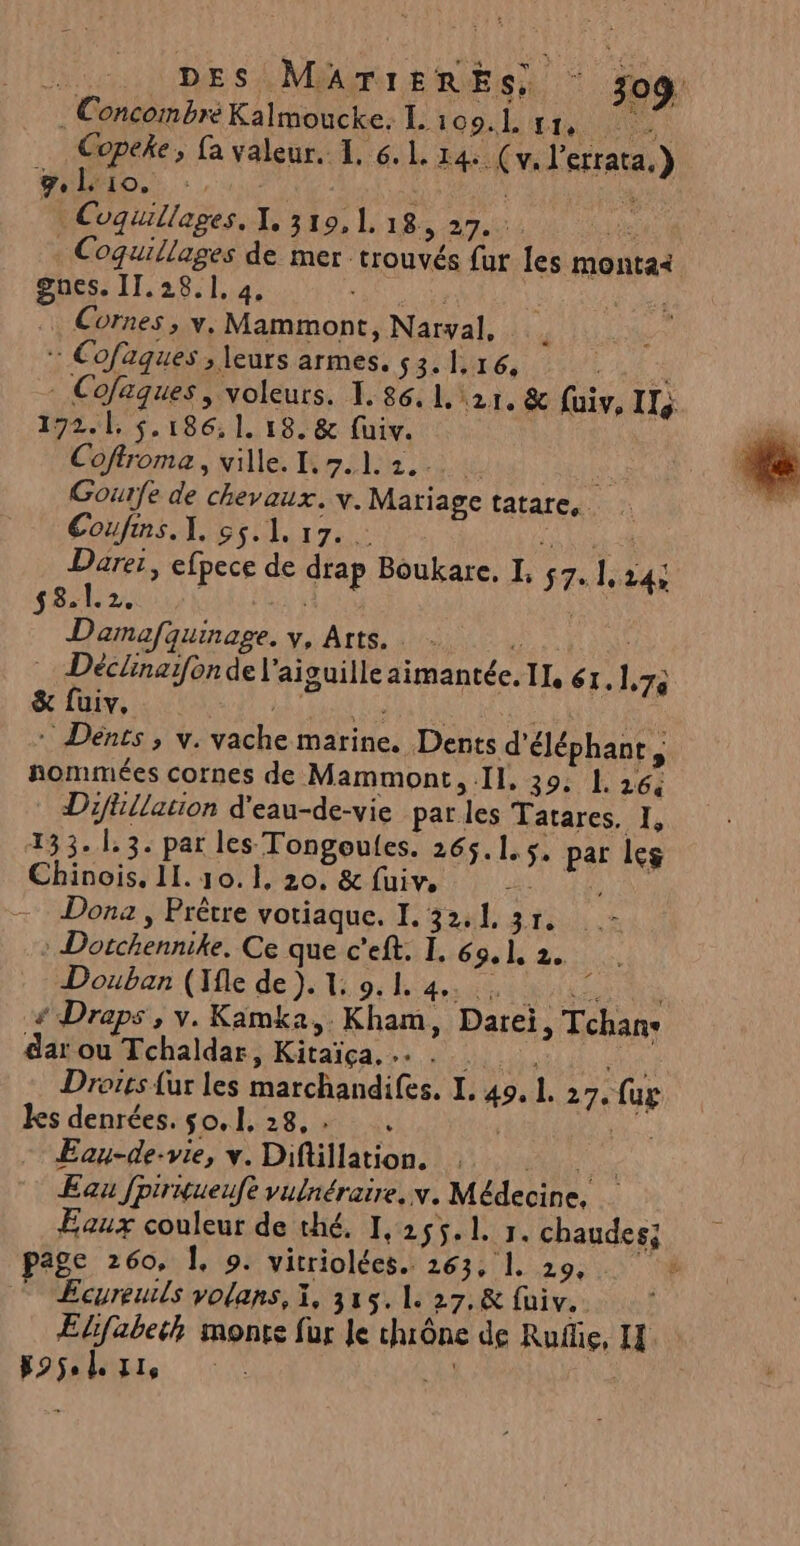 DES MATIERES, 309
Concombre Kalmoucke. I. 109. l. 11.
Copeke, ſa valeur. I. 6. l. 14. (v. l'errata.)
9. l. 10.
Coquillages. I. 319. l. 18, 27.
Coquillages de mer trouvés ſur les monta-
gnes. II. 28. l. 4.
Cornes, v. Mammont, Narval.
Coſaques, leurs armes. 53. l. 16.
Coſaques, voleurs. I. 86. l. 21. & ſuiv. II.
172. l. 5. 186. l. 18. & ſuiv.
Coſtroma, ville. I. 7. l. 2.
Courſe de chevaux. v. Mariage tatare.
Couſins. I. 55. l. 17.
Darei, eſpece de drap Boukare. I. 57. l. 24.
58. l. 2.
Damaſquinage. v. Arts.
Déclinaiſon de l'aiguille aimantée. II. 61. l. 7.
& ſuiv.
Dents, v. vache marine. Dents d'éléphant,
nommées cornes de Mammont, II. 39. l. 26.
Diſtillation d'eau-de-vie par les Tatares. I.
133. l. 3. par les Tongouſes. 265. l. 5. par les
Chinois. II. 10. l. 20. & ſuiv.
Dona, Prêtre votiaque. I. 32. l. 31.
Dotchennike. Ce que c'eſt. I. 69. l. 2.
Douban (Iſle de). I. 9. l. 4.
Draps, v. Kamka, Kham, Darei, Tchan-
dar ou Tchaldar, Kitaïca.
Droits ſur les marchandiſes. I. 49. l. 27. ſur
les denrées. 50. l. 28.
Eau-de-vie, v. Diſtillation.
Eau ſpiritueuſe vulnéraire. v. Médecine.
Eaux couleur de thé. I, 255. l. 1. chaudes;
page 260, l. 9. vitriolées. 263. l. 29.
Ecureuils volans, I. 315. l. 27. & ſuiv.
Eliſabeth monte ſur le thrône de Ruſſie, II
l. 11.